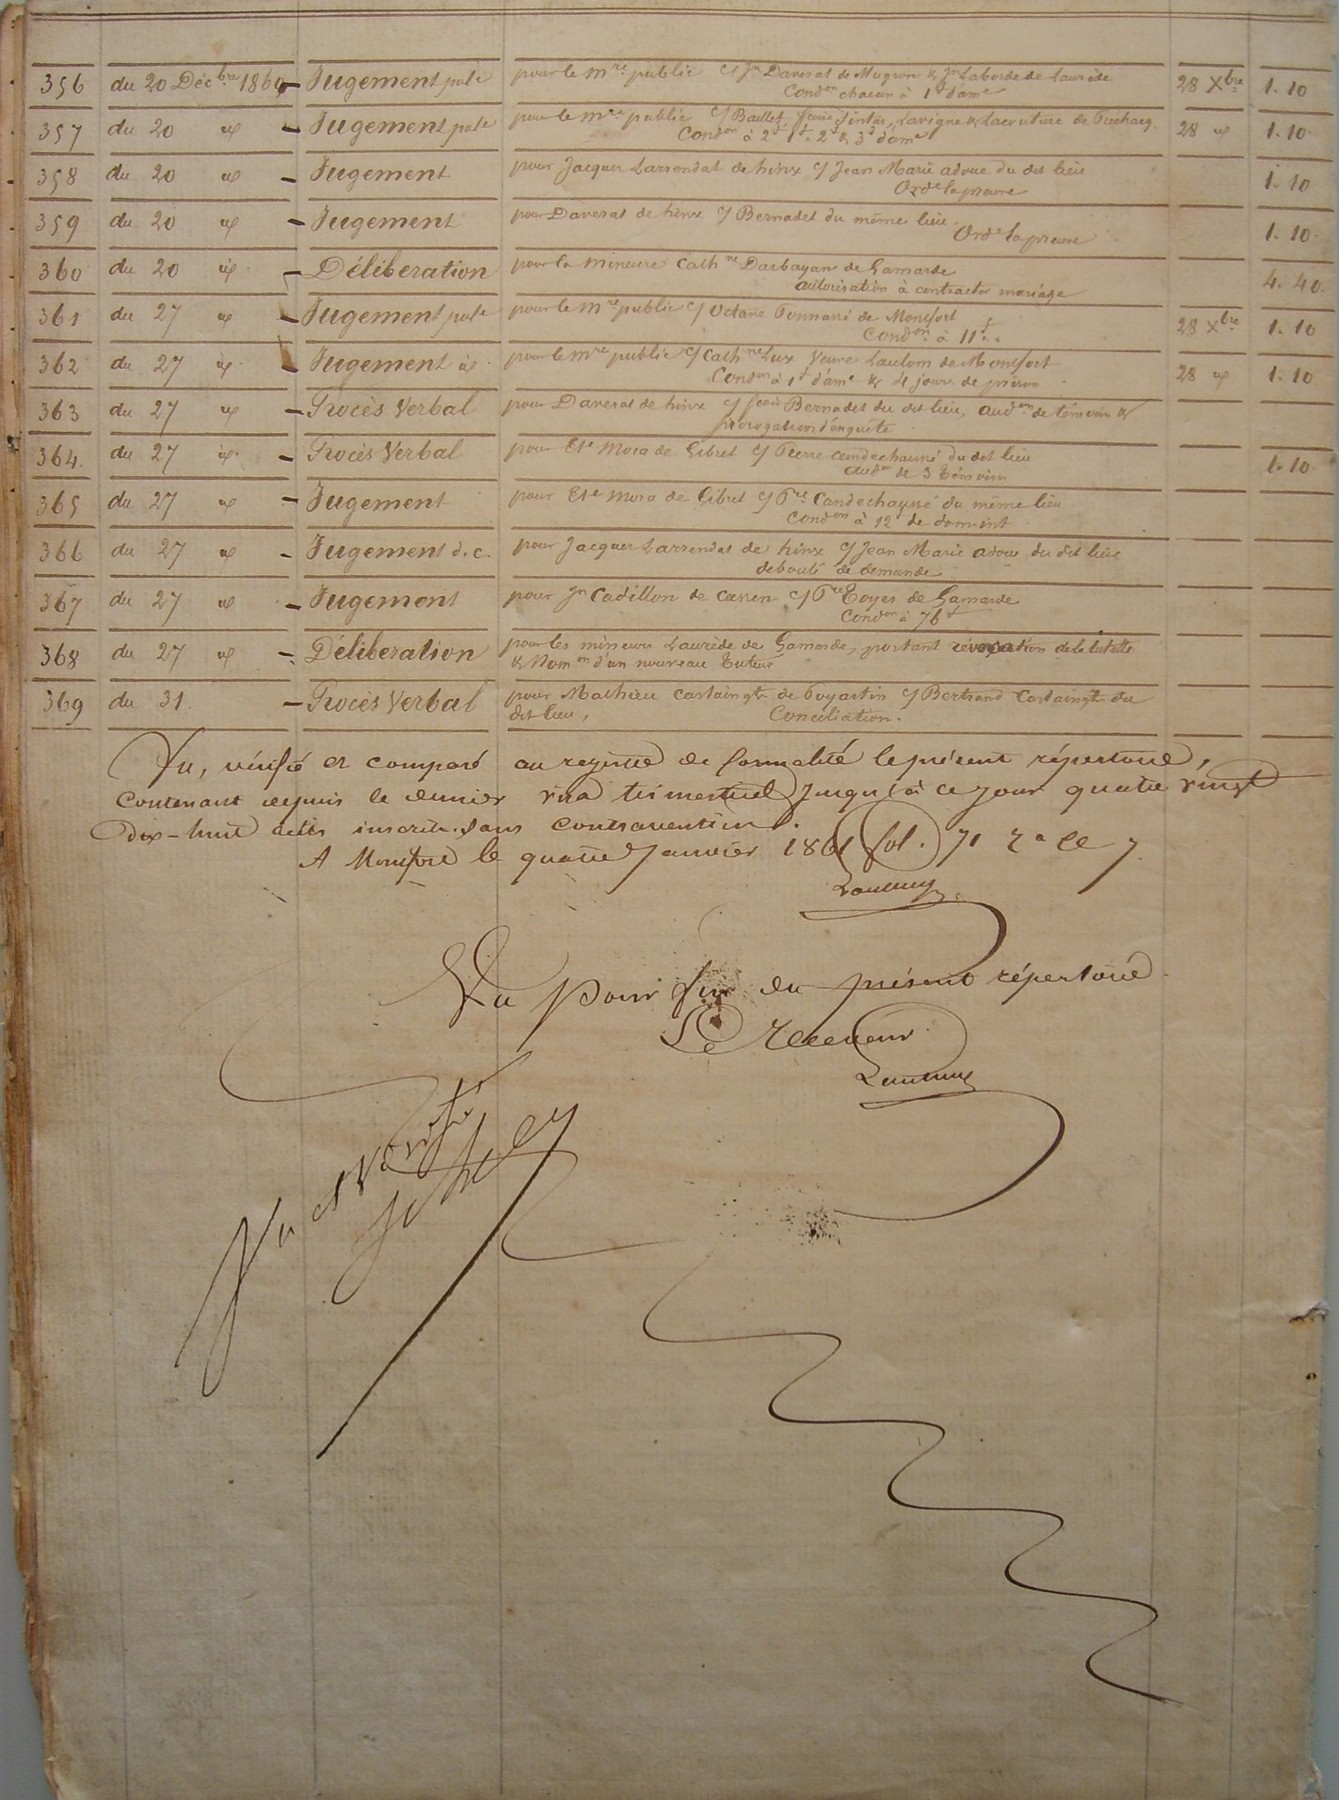 356 du 20 Décbre 1860 Jugement pole pour le mre public c/ Jn Daverat de Mugron & Jn Laborde de Laurède 28 Xbre 1.10
Condon chacun à 1f d'ame
357 du 20 id Jugement pole pour le mre public c/ Baillet, Lavigne & Lacouture de Préchacq 28 id 1.10
Condon à 2f 1f 2f & 3f d'ame
358 du 20 id Jugement pour Jacques Larrendat de hinx c/ Jean Marie adoue du dit lieu 1.10
Orde la preuve
359 du 20 id Jugement pour Daverat de hinx c/ Bernadet du même lieu 1.10
Orde la preuve
360 du 20 id Déliberation pour la mineure Cathne Darbayan de Gamarde 4.40
autorisation à contracter mariage
361 du 27 id Jugement pole pour le mre public c/ Octave de Monfort 28 Xbre 1.10
Condon à 11f
362 du 27 id Jugement id pour le mre public c/ Cathne Lux Veuve Laulom de Montfort 28 id 1.10
Condon à 1f d'ame & 4 jours de prison
363 du 27 id Procès Verbal pour Daverat de hinx c/ Jean Bernadet du dit lieu, audon de témoins &
prorogation d'enquête
364 du 27 id Procès Verbal pour Ete Mora de Gibret c/ Pierre candechauné du dit lieu 1.10
audon de 3 témoins
365 du 27 id Jugement pour Ete Mora de Gibret c/ Pre Candechauné du même lieu
Condon à 12f de dom-int
366 du 27 id Jugement d.c. pour Jacques Larrendat de hinx c/ Jean Marie adoue du dit lieu
debouté de demande
367 du 27 id Jugement pour Jn Cadillon de cassen c/ Pre Toyes de Gamarde
Condon à 76f
368 du 27 id Déliberation pour les mineurs Laurède de Gamarde, portant révocation de la tutelle
& Nomon d'un nouveau Tuteur
369 du 31 Procès Verbal pour Mathieu Castaingt de Poyartin c/ Bertrand Castaingt du
dit lieu, Conciliation.
Vu, vérifié et comparé au registre de formalité le présent répertoire,
contenant depuis le dernier visa trimestriel jusqu'à ce jour quatre vingt
dix-huit actes inscrits sans contravention.
A Monfort le quatre Janvier 1861 fol. 71 Ro Ce 7
Vu pour fin du présent répertoire
Le Receveur
Vu et Vérifié